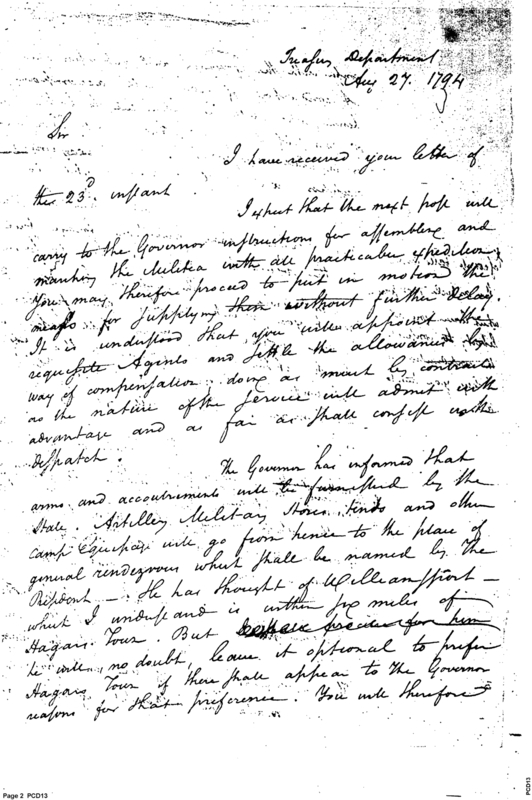 Treasury Department
Aug 27. 1794
Sir
I have received your letter of
the 23d. instant
I expect that the next post will
carry to the Governor instructions for assembling and
marching the Militia with all practicable expedition.
You may therefore proceed to put in motion the
means for supplying them without further delay.
It is understood that you will appoint the
requisite Agents and settle the allowance by
way of compensation doing as much by contract
as the nature of the service will admit with
advantage and as far as shall consist with
dispatch.
The Governor has informed that
arms and accoutrements will be furnished by the
State. Artillery Military Stores, tents and other
Camp Equipage will go from hence to the place of
general rendezvous which shall be named by The
President — He has thought of Williamsport —
which I understand is within six miles of
Hagars Town. But
he will, no doubt, leave it optional to prefer
Hagars Town if there shall appear to The Governor
reasons for that preference. You will therefore
Page 2 PCD13
PCD13